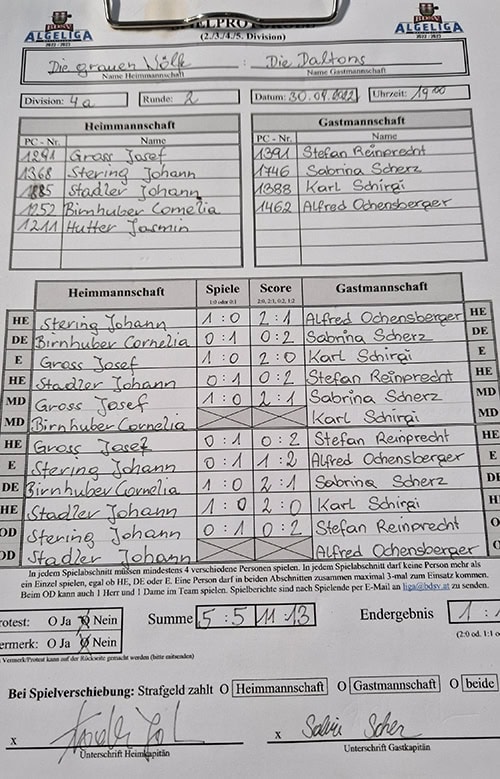 BDSV
ALGELIGA
2022 - 2023
(2./3./4./5. Division)
BDSV
ALGELIGA
2022 - 2023
Die grauen Wölfe : Die Daltons
Name Heimmannschaft Name Gastmannschaft
Division: 4a Runde: 2 Datum: 30.09.2022 Uhrzeit: 19 00
Heimmannschaft Gastmannschaft
PC - Nr. Name PC - Nr. Name
1291 Gross Josef 1391 Stefan Reinprecht
1368 Stering Johann 1746 Sabrina Scherz
1885 Stadler Johann 1388 Karl Schirgi
1252 Birnhuber Cornelia 1462 Alfred Ochensberger
1211 Hutter Jasmin
Heimmannschaft Spiele Score Gastmannschaft
1:0 oder 0:1 2:0, 2:1, 0:2, 1:2
HE Stering Johann 1 : 0 2 : 1 Alfred Ochensberger HE
DE Birnhuber Cornelia 0 : 1 0 : 2 Sabrina Scherz DE
E Gross Josef 1 : 0 2 : 0 Karl Schirgi E
HE Stadler Johann 0 : 1 0 : 2 Stefan Reinprecht HE
MD Gross Josef 1 : 0 2 : 1 Sabrina Scherz MD
MD Birnhuber Cornelia Karl Schirgi MD
HE Gross Josef 0 : 1 0 : 2 Stefan Reinprecht HE
E Stering Johann 0 : 1 1 : 2 Alfred Ochensberger E
DE Birnhuber Cornelia 1 : 0 2 : 1 Sabrina Scherz DE
HE Stadler Johann 1 : 0 2 : 0 Karl Schirgi H
OD Stering Johann 0 : 1 0 : 2 Stefan Reinprecht O
OD Stadler Johann Alfred Ochensberger O
In jedem Spielabschnitt müssen mindestens 4 verschiedene Personen spielen. In jedem Spielabschnitt darf keine Person mehr als
ein Einzel spielen, egal ob HE, DE oder E. Eine Person darf in beiden Abschnitten zusammen maximal 3-mal zum Einsatz kommen.
Beim OD kann auch 1 Herr und 1 Dame im Team spielen. Spielberichte sind nach Spielende per E-Mail an liga@bdsv.at zu senden.
rotest: O Ja O Nein Summe 5 : 5 11 : 13 Endergebnis 1 :
ermerk: O Ja O Nein (2:0 od. 1:1 o
Vermerk/Protest kann auf der Rückseite gemacht werden (bitte einsenden)
Bei Spielverschiebung: Strafgeld zahlt O Heimmannschaft O Gastmannschaft O beide
x x
Unterschrift Heimkapitän Unterschrift Gastkapitän